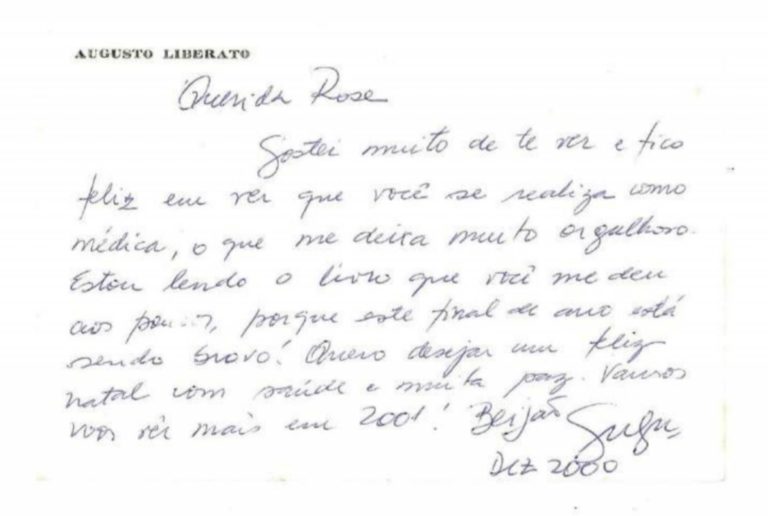 AUGUSTO LIBERATO
Querida Rose
Gostei muito de te ver e fico
feliz em ver que você se realiza como
médica, o que me deixa muito orgulhoso.
Estou lendo o livro que você me deu
aos poucos, porque este final de ano está
sendo bravo! Quero desejar um feliz
natal com saúde e muita paz. Vamos
nos ver mais em 2001! Beijão Gugu
DEZ 2000